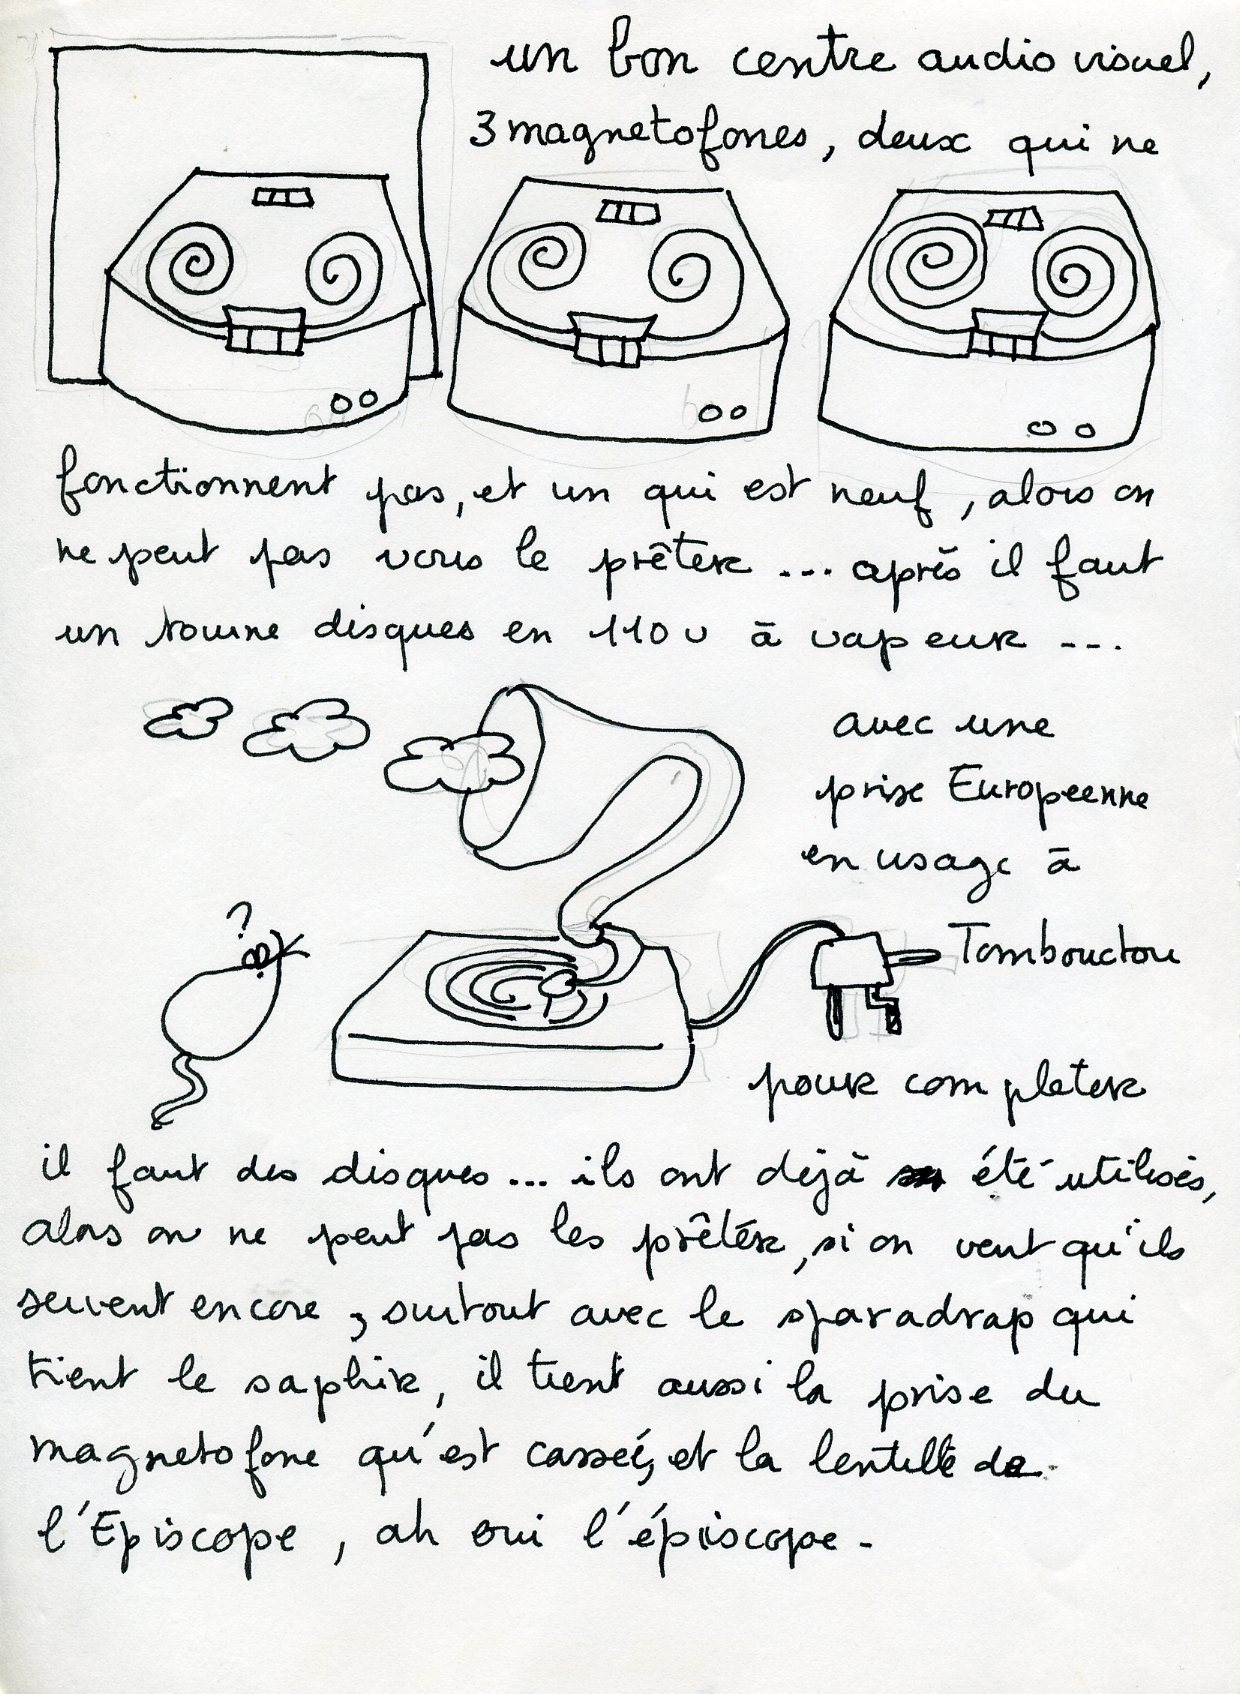 un bon centre audio visuel,
3 magnetofones, deux qui ne
fonctionnent pas, et un qui est neuf, alors on
ne peut pas vous le prêter ... après il faut
un tourne disques en 110 v à vapeur ...
avec une
prise Europeenne
en usage à
?
Tombouctou
pour completer
il faut des disques... ils ont déjà été utilisés,
alors on ne peut pas les prêtér, si on veut qu'ils
servent encore, surtout avec le sparadrap qui
tient le saphir, il tient aussi la prise du
magnetofone qu'est cassée, et la lentille de
l'Episcope, ah oui l'épiscope.